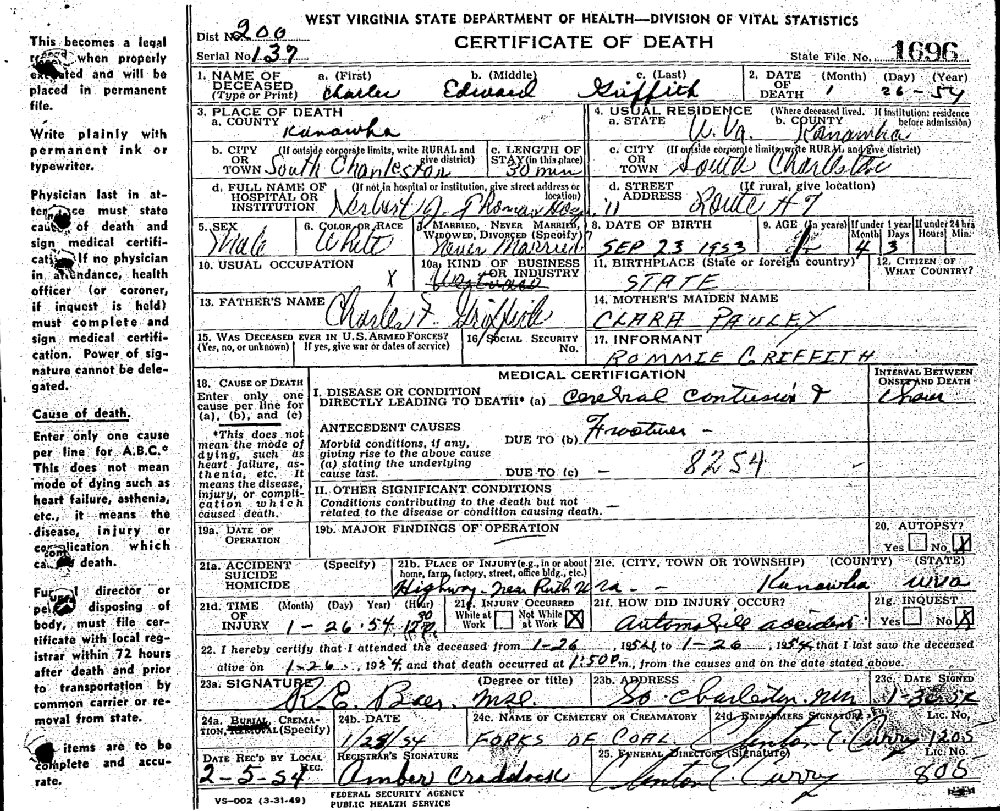 WEST VIRGINIA STATE DEPARTMENT OF HEALTH—DIVISION OF VITAL STATISTICS
Dist No. 200
CERTIFICATE OF DEATH
Serial No. 137
State File No. 1696
This becomes a legal
when properly
executed and will be
placed in permanent
file.
Write plainly with
permanent ink or
typewriter.
Physician last in at-
tendance must state
cause of death and
sign medical certifi-
cation. If no physician
in attendance, health
officer (or coroner,
if inquest is held)
must complete and
sign medical certifi-
cation. Power of sig-
nature cannot be dele-
gated.
Cause of death.
Enter only one cause
per line for A.B.C.*
This does not mean
mode of dying such as
heart failure, asthenia,
etc., it means the
disease, injury or
complication which
caused death.
Funeral director or
person disposing of
body, must file cer-
tificate with local reg-
istrar within 72 hours
after death and prior
to transportation by
common carrier or re-
moval from state.
items are to be
complete and accu-
rate.
1. NAME OF DECEASED (Type or Print) a. (First) Charles b. (Middle) Edward c. (Last) Griffith
2. DATE OF DEATH (Month) (Day) (Year) 1 26-54
3. PLACE OF DEATH a. COUNTY Kanawha
4. USUAL RESIDENCE (Where deceased lived. If institution: residence before admission) a. STATE W. Va. b. COUNTY Kanawha
b. CITY OR TOWN (If outside corporate limits, write RURAL and give district) South Charleston
c. LENGTH OF STAY (in this place) 30 min
c. CITY OR TOWN (If outside corporate limits, write RURAL and give district) South Charleston
d. FULL NAME OF HOSPITAL OR INSTITUTION (If not in hospital or institution, give street address or location) Herbert J. Thomas Hosp.
d. STREET ADDRESS (If rural, give location) Route #7
5. SEX Male
6. COLOR OR RACE White
7. MARRIED, NEVER MARRIED, WIDOWED, DIVORCED (Specify) Never Married
8. DATE OF BIRTH SEP 23 1953
9. AGE (In years) If under 1 year Month Days 4 3 If under 24 hrs Hours Min.
10. USUAL OCCUPATION X
10a. KIND OF BUSINESS OR INDUSTRY
11. BIRTHPLACE (State or foreign country) STATE
12. CITIZEN OF WHAT COUNTRY?
13. FATHER'S NAME Charles F. Griffith
14. MOTHER'S MAIDEN NAME CLARA PAULEY
15. WAS DECEASED EVER IN U.S. ARMED FORCES? (Yes, no, or unknown) If yes, give war or dates of service)
16. SOCIAL SECURITY No.
17. INFORMANT ROMMIE GRIFFITH
MEDICAL CERTIFICATION
INTERVAL BETWEEN ONSET AND DEATH
18. CAUSE OF DEATH
Enter only one cause per line for (a), (b), and (c)
*This does not mean the mode of dying, such as heart failure, asthenia, etc. It means the disease, injury, or complication which caused death.
I. DISEASE OR CONDITION DIRECTLY LEADING TO DEATH* (a) Cerebral contusion & 1 hour
ANTECEDENT CAUSES
Morbid conditions, if any, giving rise to the above cause (a) stating the underlying cause last.
DUE TO (b) Fracture -
8254
DUE TO (c) -
II. OTHER SIGNIFICANT CONDITIONS
Conditions contributing to the death but not related to the disease or condition causing death. -
19a. DATE OF OPERATION
19b. MAJOR FINDINGS OF OPERATION
20. AUTOPSY? Yes No X
21a. ACCIDENT SUICIDE HOMICIDE (Specify)
21b. PLACE OF INJURY (e.g., in or about home, farm, factory, street, office bldg., etc.) Highway-near Ruth W Va. -
21c. (CITY, TOWN OR TOWNSHIP) (COUNTY) (STATE) Kanawha W Va
21d. TIME OF INJURY (Month) (Day) Year) (Hour) 1-26-54
21e. INJURY OCCURRED While at Work Not While at Work X
21f. HOW DID INJURY OCCUR? Automobile accident
21g. INQUEST Yes No X
22. I hereby certify that I attended the deceased from 1-26, 1954, to 1-26, 1954, that I last saw the deceased
alive on 1-26, 1954, and that death occurred at 1:50 P m., from the causes and on the date stated above.
23a. SIGNATURE (Degree or title) R. E. Baer
23b. ADDRESS So. Charleston,
23c. DATE SIGNED
24a. BURIAL, CREMATION, REMOVAL (Specify)
24b. DATE 1/28/54
24c. NAME OF CEMETERY OR CREMATORY FORKS OF COAL
24d. EMBALMERS SIGNATURE Clinton E. Curry Lic. No. 1205
DATE REC'D BY LOCAL REG. 2-5-54
REGISTRAR'S SIGNATURE Amber Craddock
25. FUNERAL DIRECTORS (Signature) Clinton E. Curry Lic. No. 805
VS-002 (3-31-49)
FEDERAL SECURITY AGENCY
PUBLIC HEALTH SERVICE